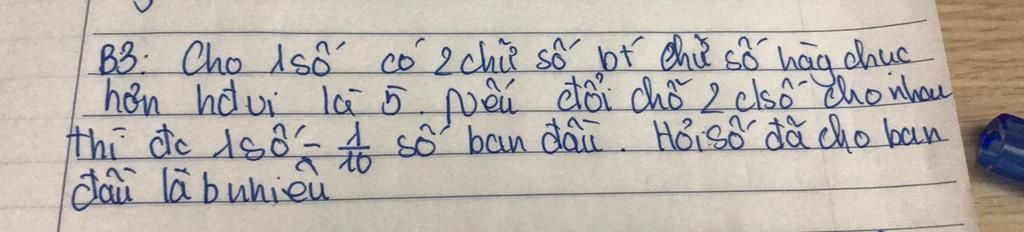 B3: Cho 1số có 2 chữ số bt chữ số hàg chục
hơn hđvị là 5. Nếu đổi chỗ 2 clsố cho nhau
thì đc 1số = 1/10 số ban đầu. Hỏi số đã cho ban
đầu là bnhiêu